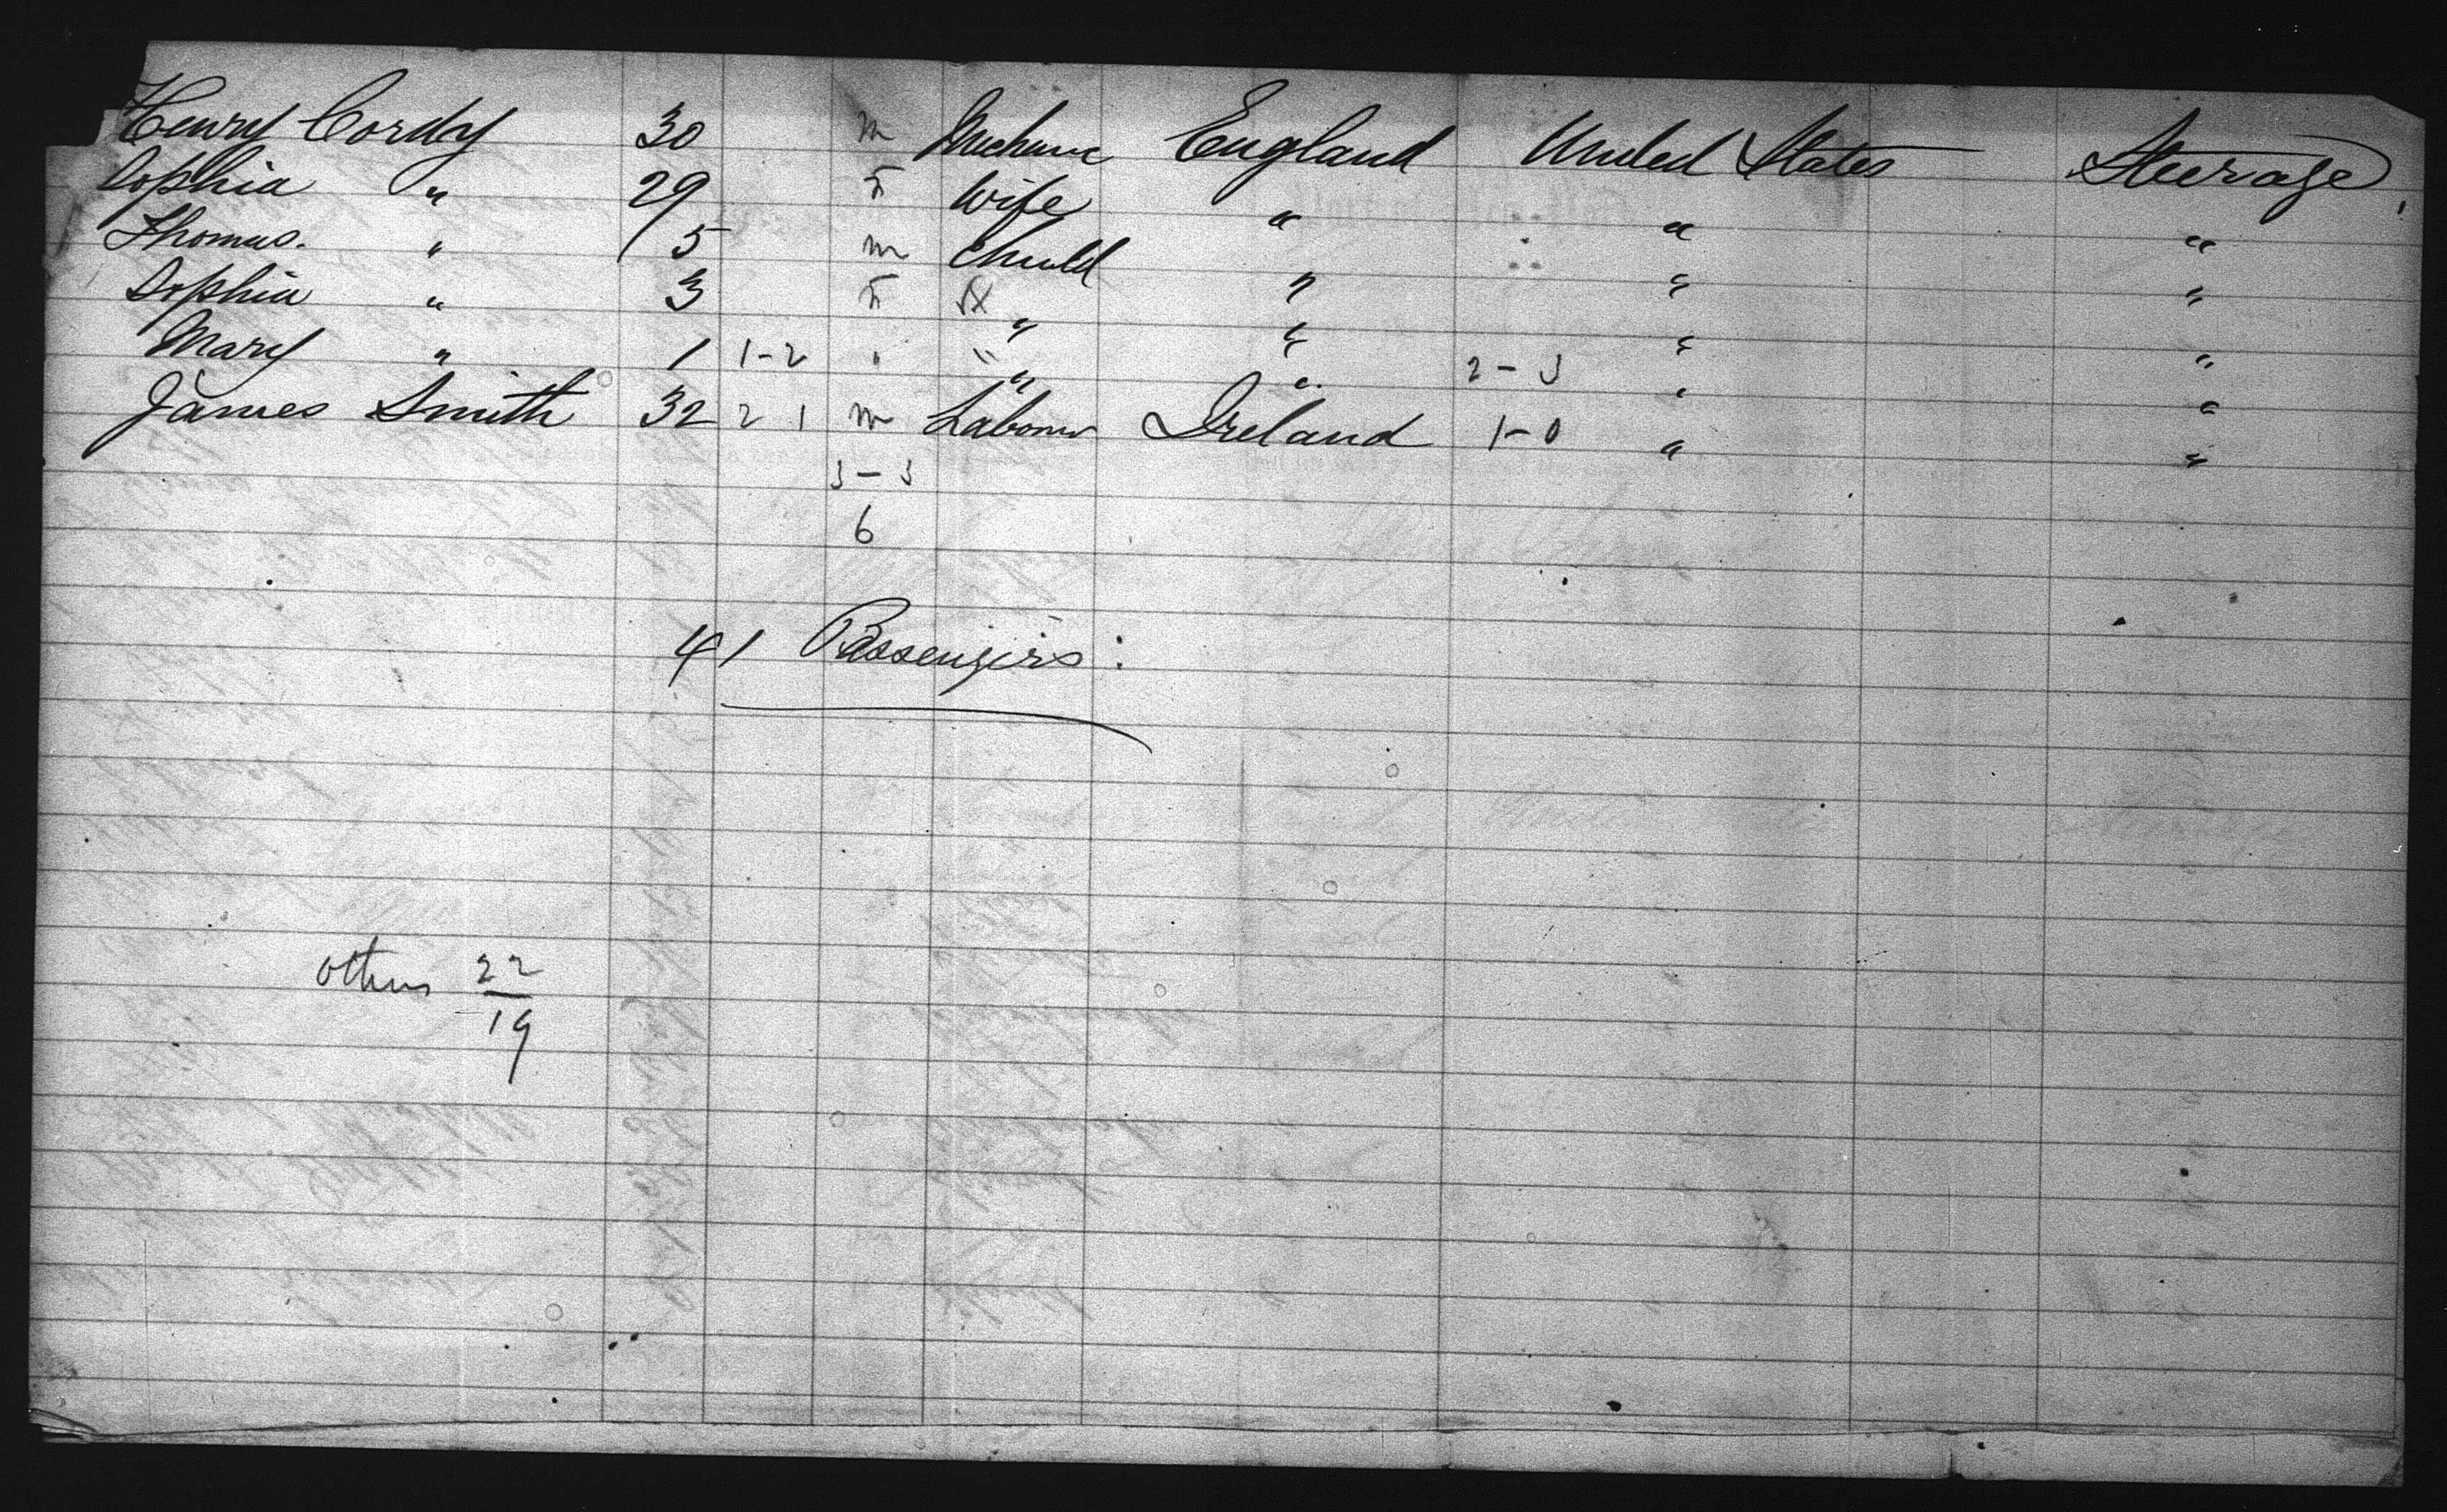 Henry Cordy 30 m Mechanic England United States Steerage
Sophia " 29 F Wife " " "
Thomas. " 5 m Child " " "
Sophia " 3 F " " " "
Mary " 1 1-2 " " " 2-3 " "
James Smith 32 2 1 m Labourer Ireland 1-0 " "
3-3
6
41 Passengers:
others 22
19